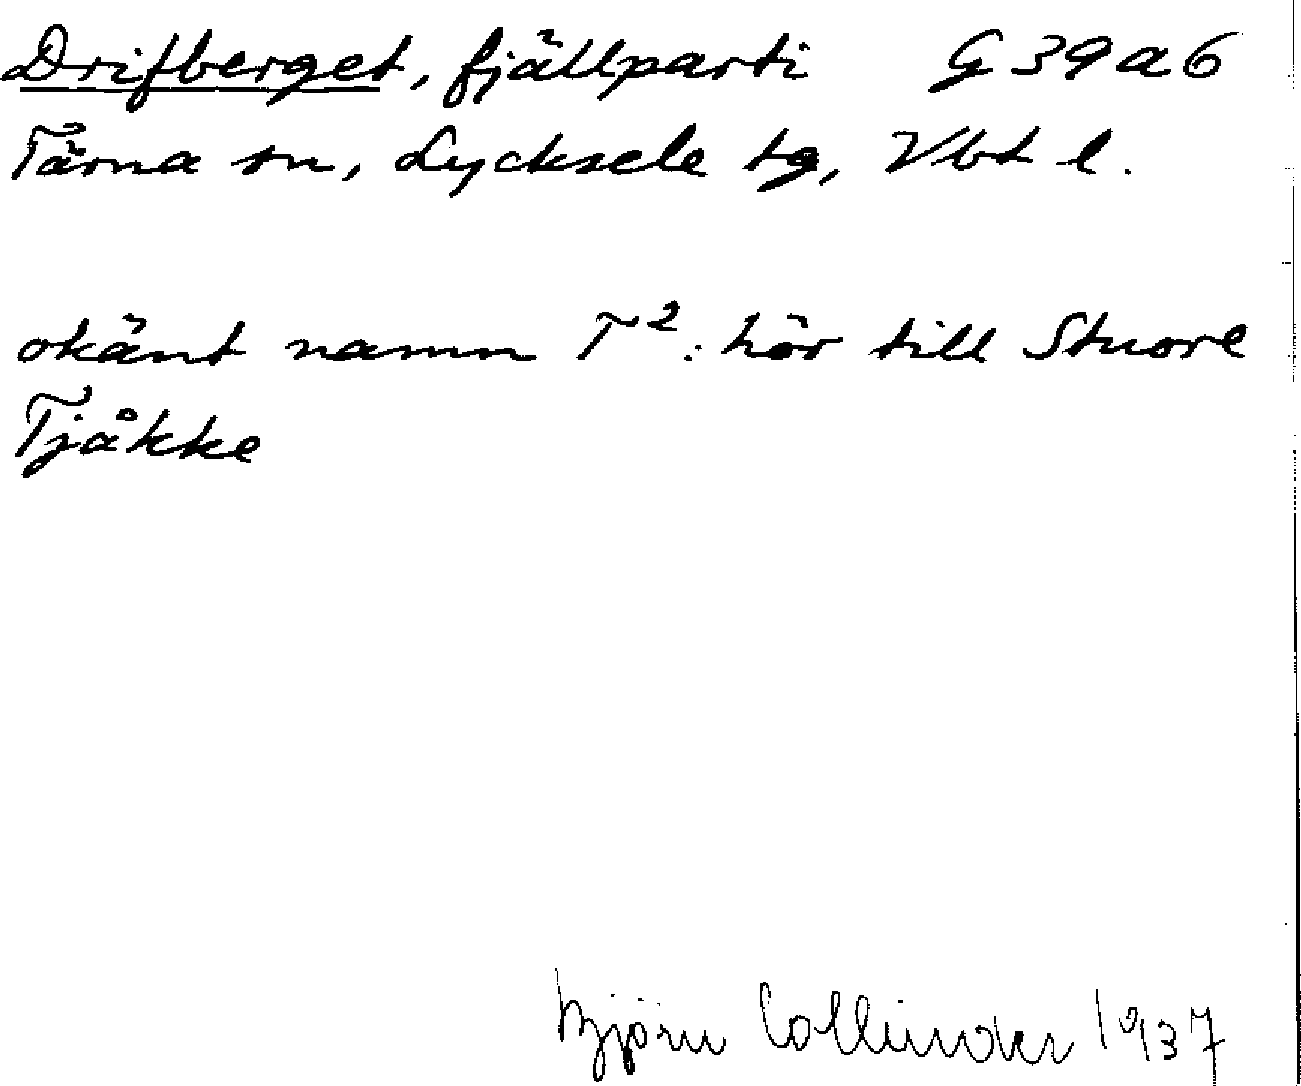 Drifberget, fjällparti G 39 a 6
Tärna sn, Lycksele tg, Vbt l.
okänt namn T²: hör till Stuore
Tjåkke
Björn Collinder 1937